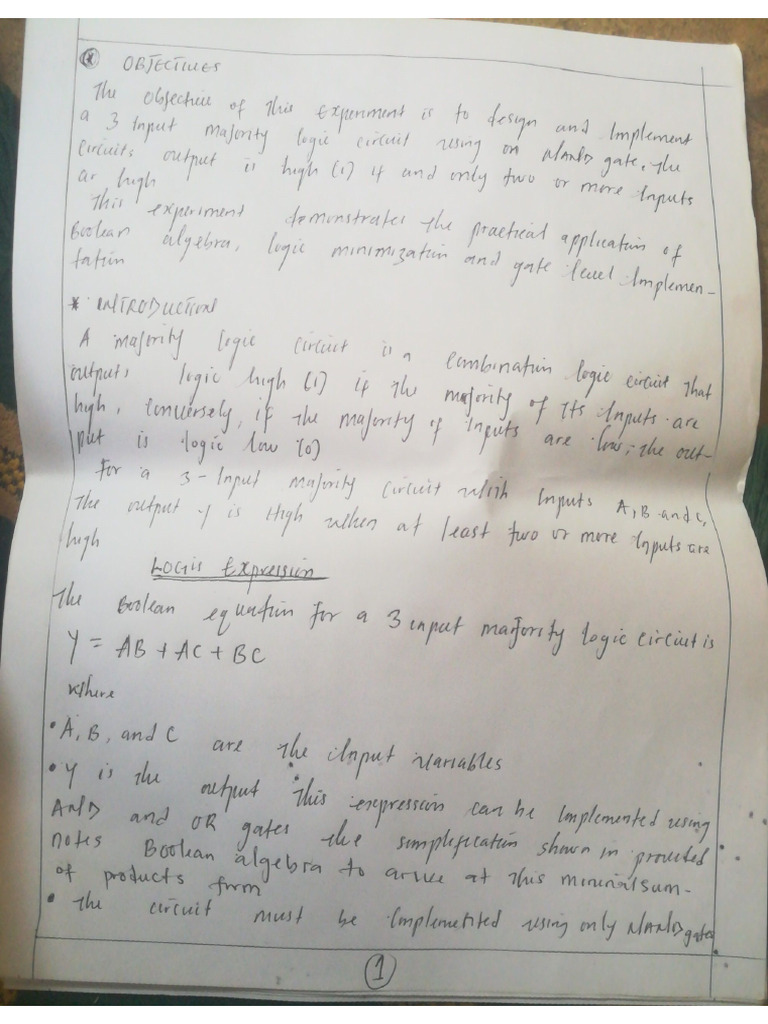 * OBJECTIVES
The objective of this experiment is to design and Implement
a 3 Input majority logic circuit using on NAND gate, the
circuits output is high (1) if and only two or more Inputs
ar high
This experiment demonstrates the practical application of
Boolean algebra, logic minimization and gate level Implemen-
tation
* INTRODUCTION
A majority logic circuit is a combination logic circuit that
outputs logic high (1) if the majority of Its Inputs are
high, Conversely, if the majority of Inputs are low, the out-
put is logic low (0)
For a 3-Input majority circuit with Inputs A, B and C,
The output y is High when at least two or more Inputs are
high
LOGIS Expression
The Boolean equation for a 3 input majority logic circuit is
Y = AB + AC + BC
where
• A, B, and C are the Input variables
• Y is the output This expression can be Implemented using
AND and OR gates the simplification shown in provided
notes Boolean algebra to arive at this minimalsum-
of products form
• The circuit must be Implemetited using only NAND gates
1